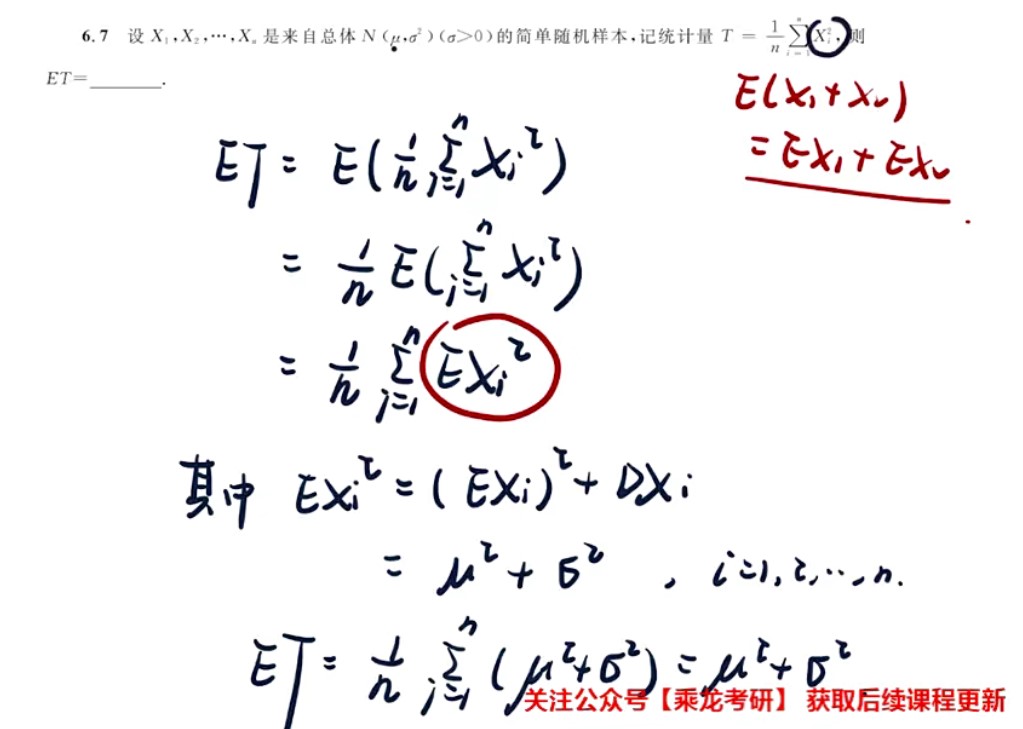 6.7 设 X₁,X₂,⋯,Xₙ 是来自总体 N(μ,σ²)(σ>0)的简单随机样本,记统计量 T = \frac{1}{n}\sum_{i=1}^{n} X_i^2,则
ET=______.
E(X₁+X₂)
= EX₁+EX₂
ET = E(\frac{1}{n}\sum_{i=1}^{n} X_i^2)
= \frac{1}{n} E(\sum_{i=1}^{n} X_i^2)
= \frac{1}{n}\sum_{i=1}^{n} EX_i^2
其中 EX_i^2 = (EX_i)^2 + DX_i
= μ²+σ² , i=1,2,⋯,n.
ET = \frac{1}{n}\sum_{i=1}^{n} (μ²+σ²) = μ²+σ²
关注公众号【乘龙考研】 获取后续课程更新